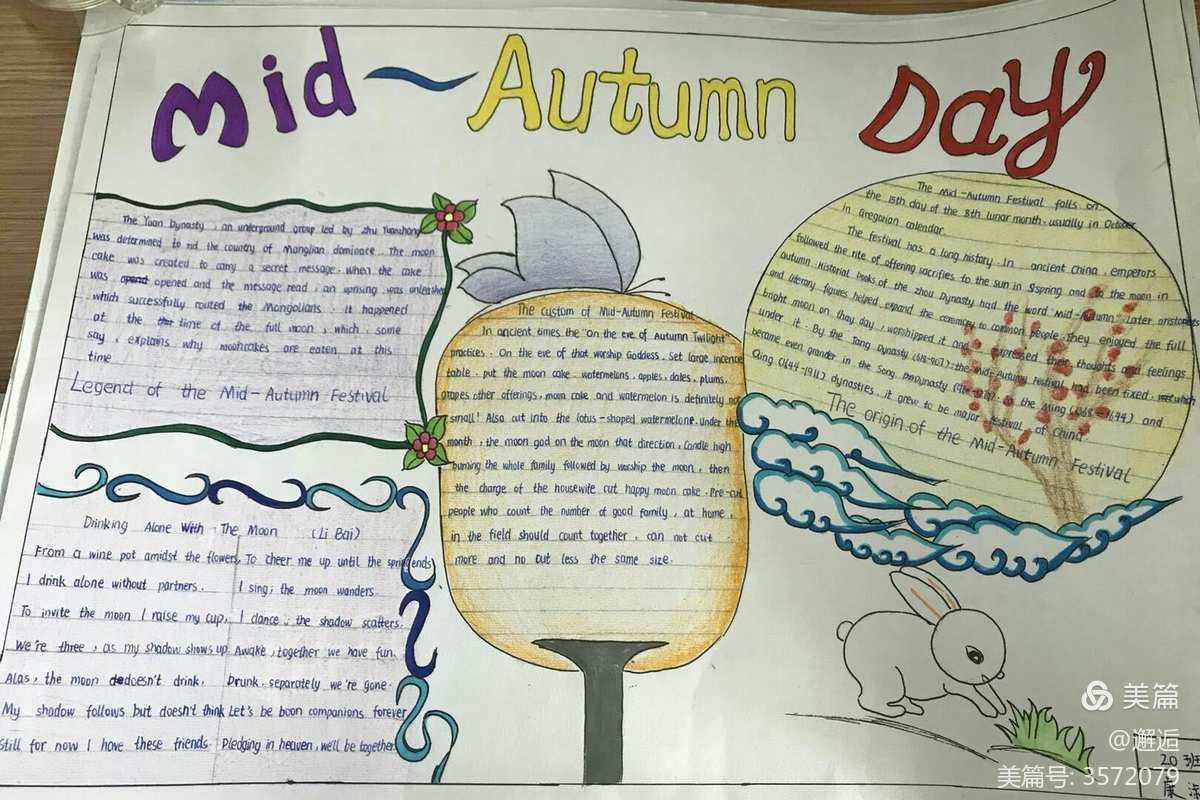 Mid-Autumn Day
The Yuan Dynasty , an underground group led by Zhu Yuanzhang
was determined to rid the country of Monglian dominace. The moon
cake was created to carry a secret message. when the cake
was opened and the message read , an uprising was unleashed
which successfully routed the Mongolians. it happened
at the time of the full moon , which . some
say , explains why mooncakes are eaten at this
time
Legend of the Mid-Autumn Festival
Drinking Alone With The Moon (Li Bai)
From a wine pot amidst the flowers, To cheer me up until the spring ends
I drink alone without partners. I sing; the moon wanders.
To invite the moon I raise my cup, I dance ; the shadow scatters.
We're three , as my shadow shows up. Awake , together we have fun.
Alas , the moon doesn't drink. Drunk . separately we're gone.
My shadow follows but doesn't think Let's be boon companions forever
Still for now I have these friends. Pledging in heaven, we'll be together.
The custom of Mid-Autumn Festival
In ancient times the "on the eve of Autumn Twilight
practices . On the eve of that worship Goddess. Set large incense
table . put the moon cake . watermelons , apples, dates, plums.
grapes other offerings, moon cake and watermelon is definitely not
small! Also cut into the lotus-shaped watermelone. under the
month , the moon god on the moon that direction, Candle high
burning the whole family followed by worship the moon , then
the charge of the housewife cut happy moon cake . Pre-cut
people who count the number of good family , at home ,
in the field should count together . can not cut
more and no out less the same size.
The Mid-Autumn Festival falls on
the 15th day of the 8th lunar month . usually in October
in Gregorian calendar
The festival has a long history . In ancient China , emperors
followed the rite of offering sacrifies to the sun in spring and to the moon in
autumn . Historial books of the Zhou Dynasty had the word "Mid-Autumn". Later aristocrats
and literary figures helped expand the ceremony to common people. They enjoyed the full
bright moon on thay day . worshipped it and expressed their thoughts and feelings
under it . By the Tang Dynasty (618-907) . the Mid-Autumn Festival had been fixed . which
became even grander in the Song Dynasty . In the Ming (1368-1644) and
Qing (1644-1911) dynasties , it grew to be major festival of China
The origin of the Mid-Autumn Festival
20班
美篇
@邂逅
美篇号: 3572079